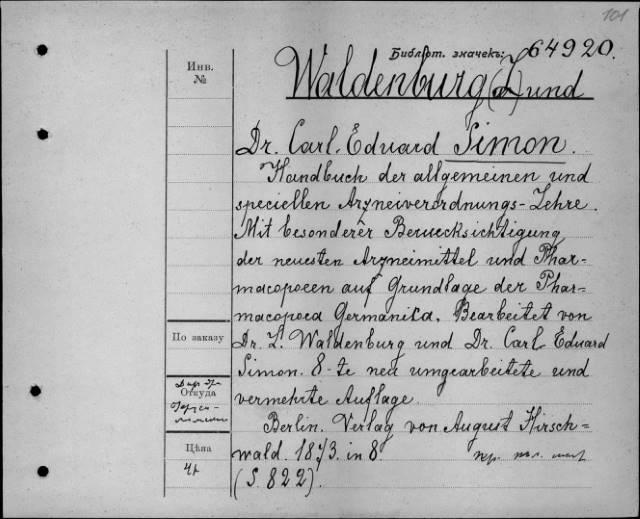 101
Библіот. значекъ: 64920.
Инв.
№
Waldenburg (L) und
Dr. Carl Eduard Simon.
Handbuch der allgemeinen und
speciellen Arzneiverordnungs-Lehre.
Mit besonderer Beruecksichtigung
der neuesten Arzneimittel und Phar-
macopoeen auf Grundlage der Phar-
macopoea Germanica. Bearbeitet von
По заказу
Dr. L. Waldenburg und Dr. Carl Eduard
Simon. 8-te neu umgearbeitete und
Откуда
vermehrte Auflage.
Berlin. Verlag von August Hirsch=
Цѣна
wald. 1873. in 8.
(S. 822).